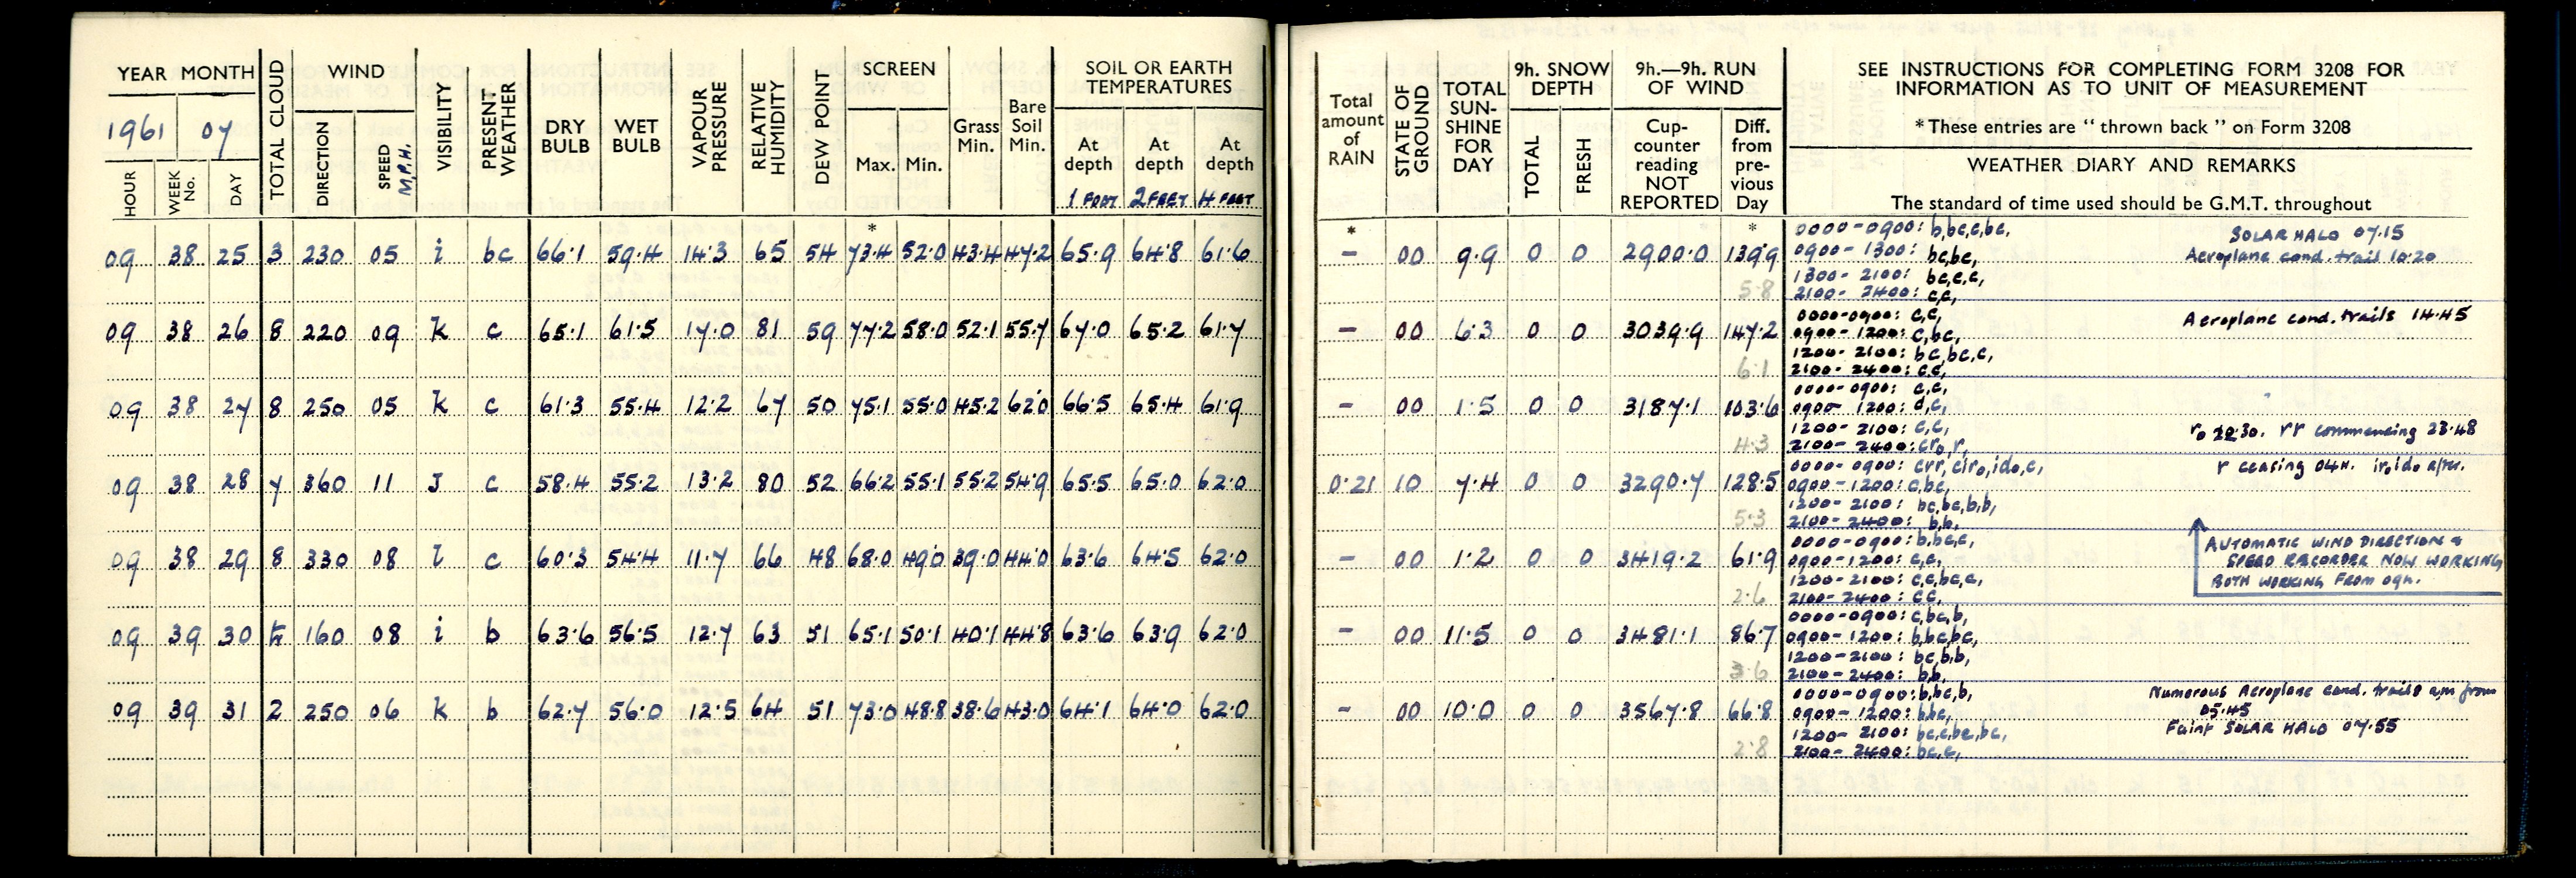 YEAR MONTH
1961 07
HOUR
WEEK No.
DAY
TOTAL CLOUD
WIND
DIRECTION
SPEED M.P.H.
VISIBILITY
PRESENT WEATHER
DRY BULB
WET BULB
VAPOUR PRESSURE
RELATIVE HUMIDITY
DEW POINT
SCREEN
Max. Min.
Grass Min.
Bare Soil Min.
SOIL OR EARTH TEMPERATURES
At depth 1 FOOT
At depth 2 FEET
At depth 4 FEET
Total amount of RAIN
STATE OF GROUND
TOTAL SUN-SHINE FOR DAY
9h. SNOW DEPTH
TOTAL
FRESH
9h.—9h. RUN OF WIND
Cup-counter reading NOT REPORTED
Diff. from pre-vious Day
SEE INSTRUCTIONS FOR COMPLETING FORM 3208 FOR
INFORMATION AS TO UNIT OF MEASUREMENT
* These entries are " thrown back " on Form 3208
WEATHER DIARY AND REMARKS
The standard of time used should be G.M.T. throughout
* * *
09 38 25 3 230 05 i bc 66·1 59·4 14·3 65 54 73·4 52·0 43·4 47·2 65·9 64·8 61·6 — 00 9·9 0 0 2900·0 139·9
5·8
0000-0900: b,bc,c,bc, SOLAR HALO 07.15
0900-1300: bc,bc, Aeroplane cond. trail 10·20
1300-2100: bc,c,c,
2100-2400: c,c,
09 38 26 8 220 09 k c 65·1 61·5 17·0 81 59 77·2 58·0 52·1 55·7 67·0 65·2 61·7 — 00 6·3 0 0 3039·9 147·2
6·1
0000-0900: c,c, Aeroplane cond. trails 14·45
0900-1200: c,bc,
1200-2100: bc,bc,c,
2100-2400: c,c,
09 38 27 8 250 05 k c 61·3 55·4 12·2 67 50 75·1 55·0 45·2 62·0 66·5 65·4 61·9 — 00 1·5 0 0 3187·1 103·6
4·3
0000-0900: c,c,
0900-1200: d,c,
1200-2100: c,c, rr commencing 23·48
2100-2400: cr₀,r,
09 38 28 7 360 11 J c 58·4 55·2 13·2 80 52 66·2 55·1 55·2 54·9 65·5 65·0 62·0 0·21 10 7·4 0 0 3290·7 128·5
5·3
0000-0900: crr, cir₀, id₀, c, r ceasing 04H. ir₀id₀ after.
0900-1200: c,bc,
1200-2100: bc,bc,b,b,
2100-2400: b,b,
09 38 29 8 330 08 l c 60·3 54·4 11·7 66 48 68·0 49·0 39·0 44·0 63·6 64·5 62·0 — 00 1·2 0 0 3419·2 61·9
2·6
0000-0900: b,bc,c,
0900-1200: c,c,
1200-2100: c,c,bc,c,
2100-2400: c,c,
AUTOMATIC WIND DIRECTION &
SPEED RECORDER NOW WORKING
BOTH WORKING FROM 09h.
09 39 30 160 08 i b 63·6 56·5 12·7 63 51 65·1 50·1 40·1 44·8 63·6 63·9 62·0 — 00 11·5 0 0 3481·1 86·7
3·6
0000-0900: c,bc,b,
0900-1200: b,bc,bc,
1200-2100: bc,b,b,
2100-2400: b,b,
09 39 31 2 250 06 k b 62·7 56·0 12·5 64 51 73·0 48·8 38·6 43·0 64·1 64·0 62·0 — 00 10·0 0 0 3567·8 66·8
2·8
0000-0900: b,bc,b, Numerous Aeroplane cond. trails a.m from
0900-1200: b,bc, 05·45
1200-2100: bc,c,bc,bc, Faint SOLAR HALO 07·55
2100-2400: bc,c,